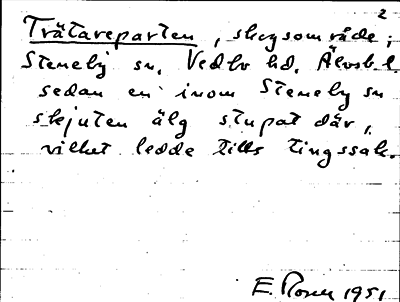 2
Trätareparten, skogsområde;
Steneby sn, Vedbo hd, Älvsb. l.
sedan en inom Steneby sn
skjuten älg stupat där,
vilket ledde till tingssak.
E. 1951